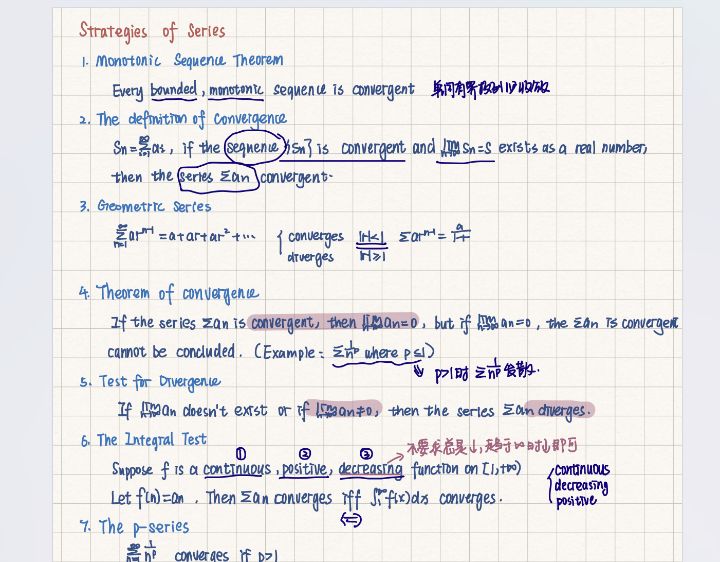 Strategies of Series
1. Monotonic Sequence Theorem
Every bounded, monotonic sequence is convergent 单向有界
2. The definition of Convergence
Sn=∑ai, if the sequence {Sn} is convergent and lim Sn=S exists as a real number,
then the series ∑an convergent.
3. Geometric Series
∑ar^n-1 = a+ar+ar²+··· { converges |r|<1 ∑ar^n-1 = a/1-r
diverges |r|≥1
4. Theorem of convergence
If the series ∑an is convergent, then lim an=0, but if lim an=0, the ∑an is convergent
cannot be concluded. (Example: ∑1/n^p where p≤1)
p>1时 ∑1/n^p 会散.
5. Test for Divergence
If lim an doesn't exist or if lim an≠0, then the series ∑an diverges.
6. The Integral Test
① ② ③ 不要求总是↓, 趋于∞时↓即可
Suppose f is a continuous, positive, decreasing function on [1,+∞)
{ continuous
decreasing
positive
Let f(n)=an. Then ∑an converges iff ∫₁^∞ f(x)dx converges.
(⇔)
7. The p-series
∑ 1/n^p converges if p>1